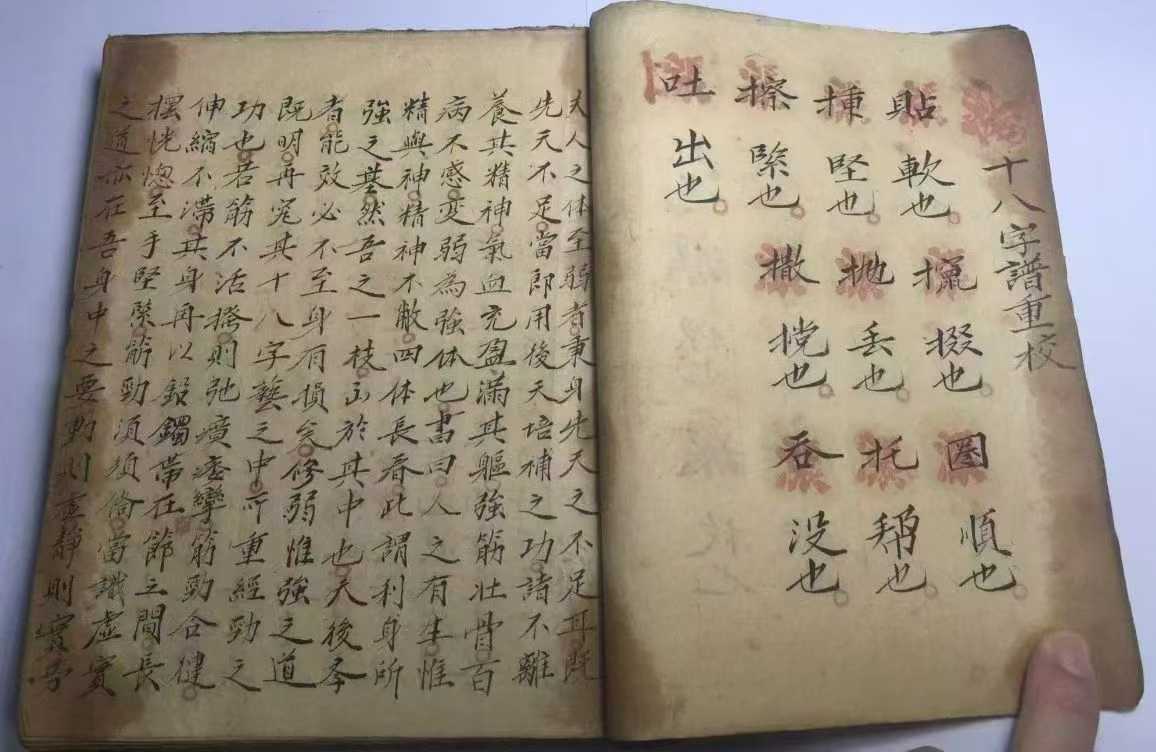 十八字譜重校
貼 軟也 擸 掇也 圈 順也
堅也 抛 丢也 托 也
擦 緊也 撒 也 吞 没也
吐 出也
夫人之体至弱者秉身先天之不足耳既
先天不足當即用後天培補之功諸不離
養其精神氣血充盈滿其軀強筋壯骨百
病不感变弱為強体也書曰人之有生惟
精與神精神不敝四体長春此謂利身所
強之基然吾之一枝於其中也天後孝
者能效必不至身有損矣修弱惟強之道
既明再究其十八字藝之中所重經勁之
功也若筋不活撥則弛攣筋勁合健
伸縮不滯其身再以鉛鐲帶在節之間長
摆恍惚至手堅緊筋勁須須當識虛實
之道亦在吾身中之要動則虛靜則實